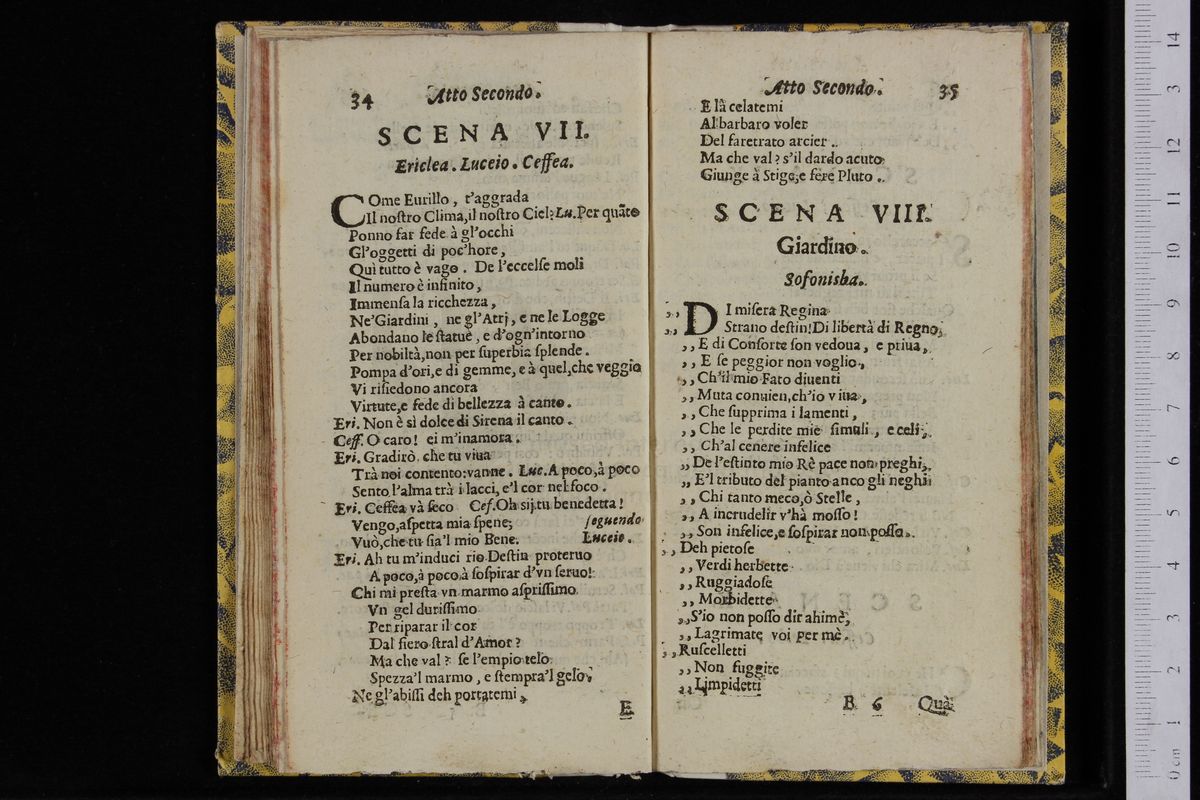 34 Atto Secondo.
SCENA VII.
Ericlea. Luceio. Ceffea.
COme Eurillo, t'aggrada
Il nostro Clima, il nostro Ciel? Lu. Per quãto
Ponno far fede à gl'occhi
Gl'oggetti di poc'hore,
Quì tutto è vago. De l'eccelse moli
Il numero è infinito,
Immensa la ricchezza,
Ne'Giardini, ne gl'Atrj, e ne le Logge
Abondano le statue, e d'ogn'intorno
Per nobiltà, non per superbia splende.
Pompa d'ori, e di gemme, e à quel, che veggio
Vi risiedono ancora
Virtute, e fede di bellezza à canto.
Eri. Non è sì dolce di Sirena il canto.
Ceff. O caro! ei m'inamora.
Eri. Gradirò che tu viua
Trà noi contento: vanne. Luc. A poco, à poco
Sento l'alma trà i lacci, e'l cor nel foco.
Eri. Ceffea và seco Cef. Oh sij tu benedetta!
Vengo, aspetta mia spene; seguendo
Vuò, che tu sia'l mio Bene. Luceio.
Eri. Ah tu m'induci rio Destin proteruo
A poco, à poco à sospirar d'vn seruo!
Chi mi presta vn marmo asprissimo
Vn gel durissimo
Per riparar il cor
Dal fiero stral d'Amor?
Ma che val? se l'empio telo
Spezza'l marmo, e stempra'l gelo;
Ne gl'abissi deh portatemi,
E
Atto Secondo. 35
E là celatemi
Al barbaro voler
Del faretrato arcier.
Ma che val? s'il dardo acuto
Giunge à Stige, e fère Pluto.
SCENA VIII.
Giardino.
Sofonisba.
,, DI misera Regina
,, Strano destin! Di libertà di Regno,
,, E di Consorte son vedoua, e priua,
,, E se peggior non voglio,
,, Ch'il mio Fato diuenti
,, Muta conuien, ch'io viua,
,, Che supprima i lamenti,
,, Che le perdite mie simuli, e celi;
,, Ch'al cenere infelice
,, De l'estinto mio Rè pace non preghi,
,, E'l tributo del pianto anco gli neghi
,, Chi tanto meco, ò Stelle,
,, A incrudelir v'hà mosso!
,, Son infelice, e sospirar non posso.
,, Deh pietose
,, Verdi herbette
,, Ruggiadose
,, Morbidette
,, S'io non posso dir ahimè,
,, Lagrimate voi per mè.
,, Ruscelletti
,, Non fuggite
,, Limpidetti
B 6 Quà